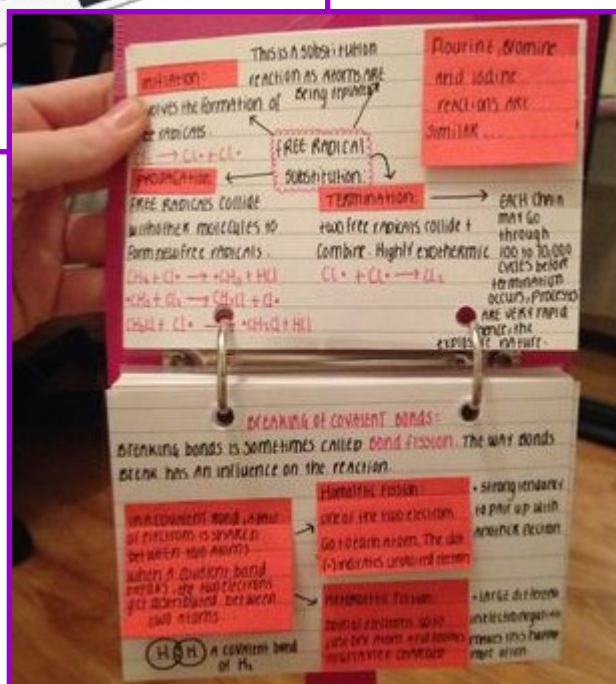 INITIATION:
THIS IS A SUBSTITUTION
REACTION AS ATOMS ARE
BEING REPLACED
FLOURINE, BROMINE
AND IODINE
REACTIONS ARE
SIMILAR ...
THE FORMATION OF
RADICALS.
→ Cl• + Cl•
FREE RADICAL
SUBSTITUTION:
PROPAGATION:
FREE RADICALS COLLIDE
WITH OTHER MOLECULES TO
FORM NEW FREE RADICALS.
CH₄ + Cl• → •CH₃ + HCl
•CH₃ + Cl₂ → CH₃Cl + Cl•
CH₃Cl + Cl• → •CH₂Cl + HCl
TERMINATION:
TWO FREE RADICALS COLLIDE +
COMBINE. HIGHLY EXOTHERMIC
Cl• + Cl• → Cl₂
EACH CHAIN
MAY GO
THROUGH
100 TO 10,000
CYCLES BEFORE
TERMINATION
OCCURS, PROCESSES
ARE VERY RAPID
HENCE, THE
EXPLOSIVE NATURE.
BREAKING OF COVALENT BONDS:
BREAKING BONDS IS SOMETIMES CALLED BOND FISSION. THE WAY BONDS
BREAK HAS AN INFLUENCE ON THE REACTION.
IN A COVALENT BOND, A PAIR
OF ELECTRONS IS SHARED
BETWEEN TWO ATOMS.
WHEN A COVALENT BOND
BREAKS, THE TWO ELECTRONS
GET DISTRIBUTED BETWEEN
TWO ATOMS...
H H A COVALENT BOND
OF H₂
HOMOLYTIC FISSION:
ONE OF THE TWO ELECTRONS
GO TO EACH ATOM. THE DOT
(•) INDICATES UNPAIRED ELECTRON
• STRONG TENDENCY
TO PAIR UP WITH
ANOTHER ELECTRON
HETEROLYTIC FISSION:
• LARGE DIFFERENCE
IN ELECTRONEGATIVITY
MAKES THIS HAPPEN
MORE OFTEN.